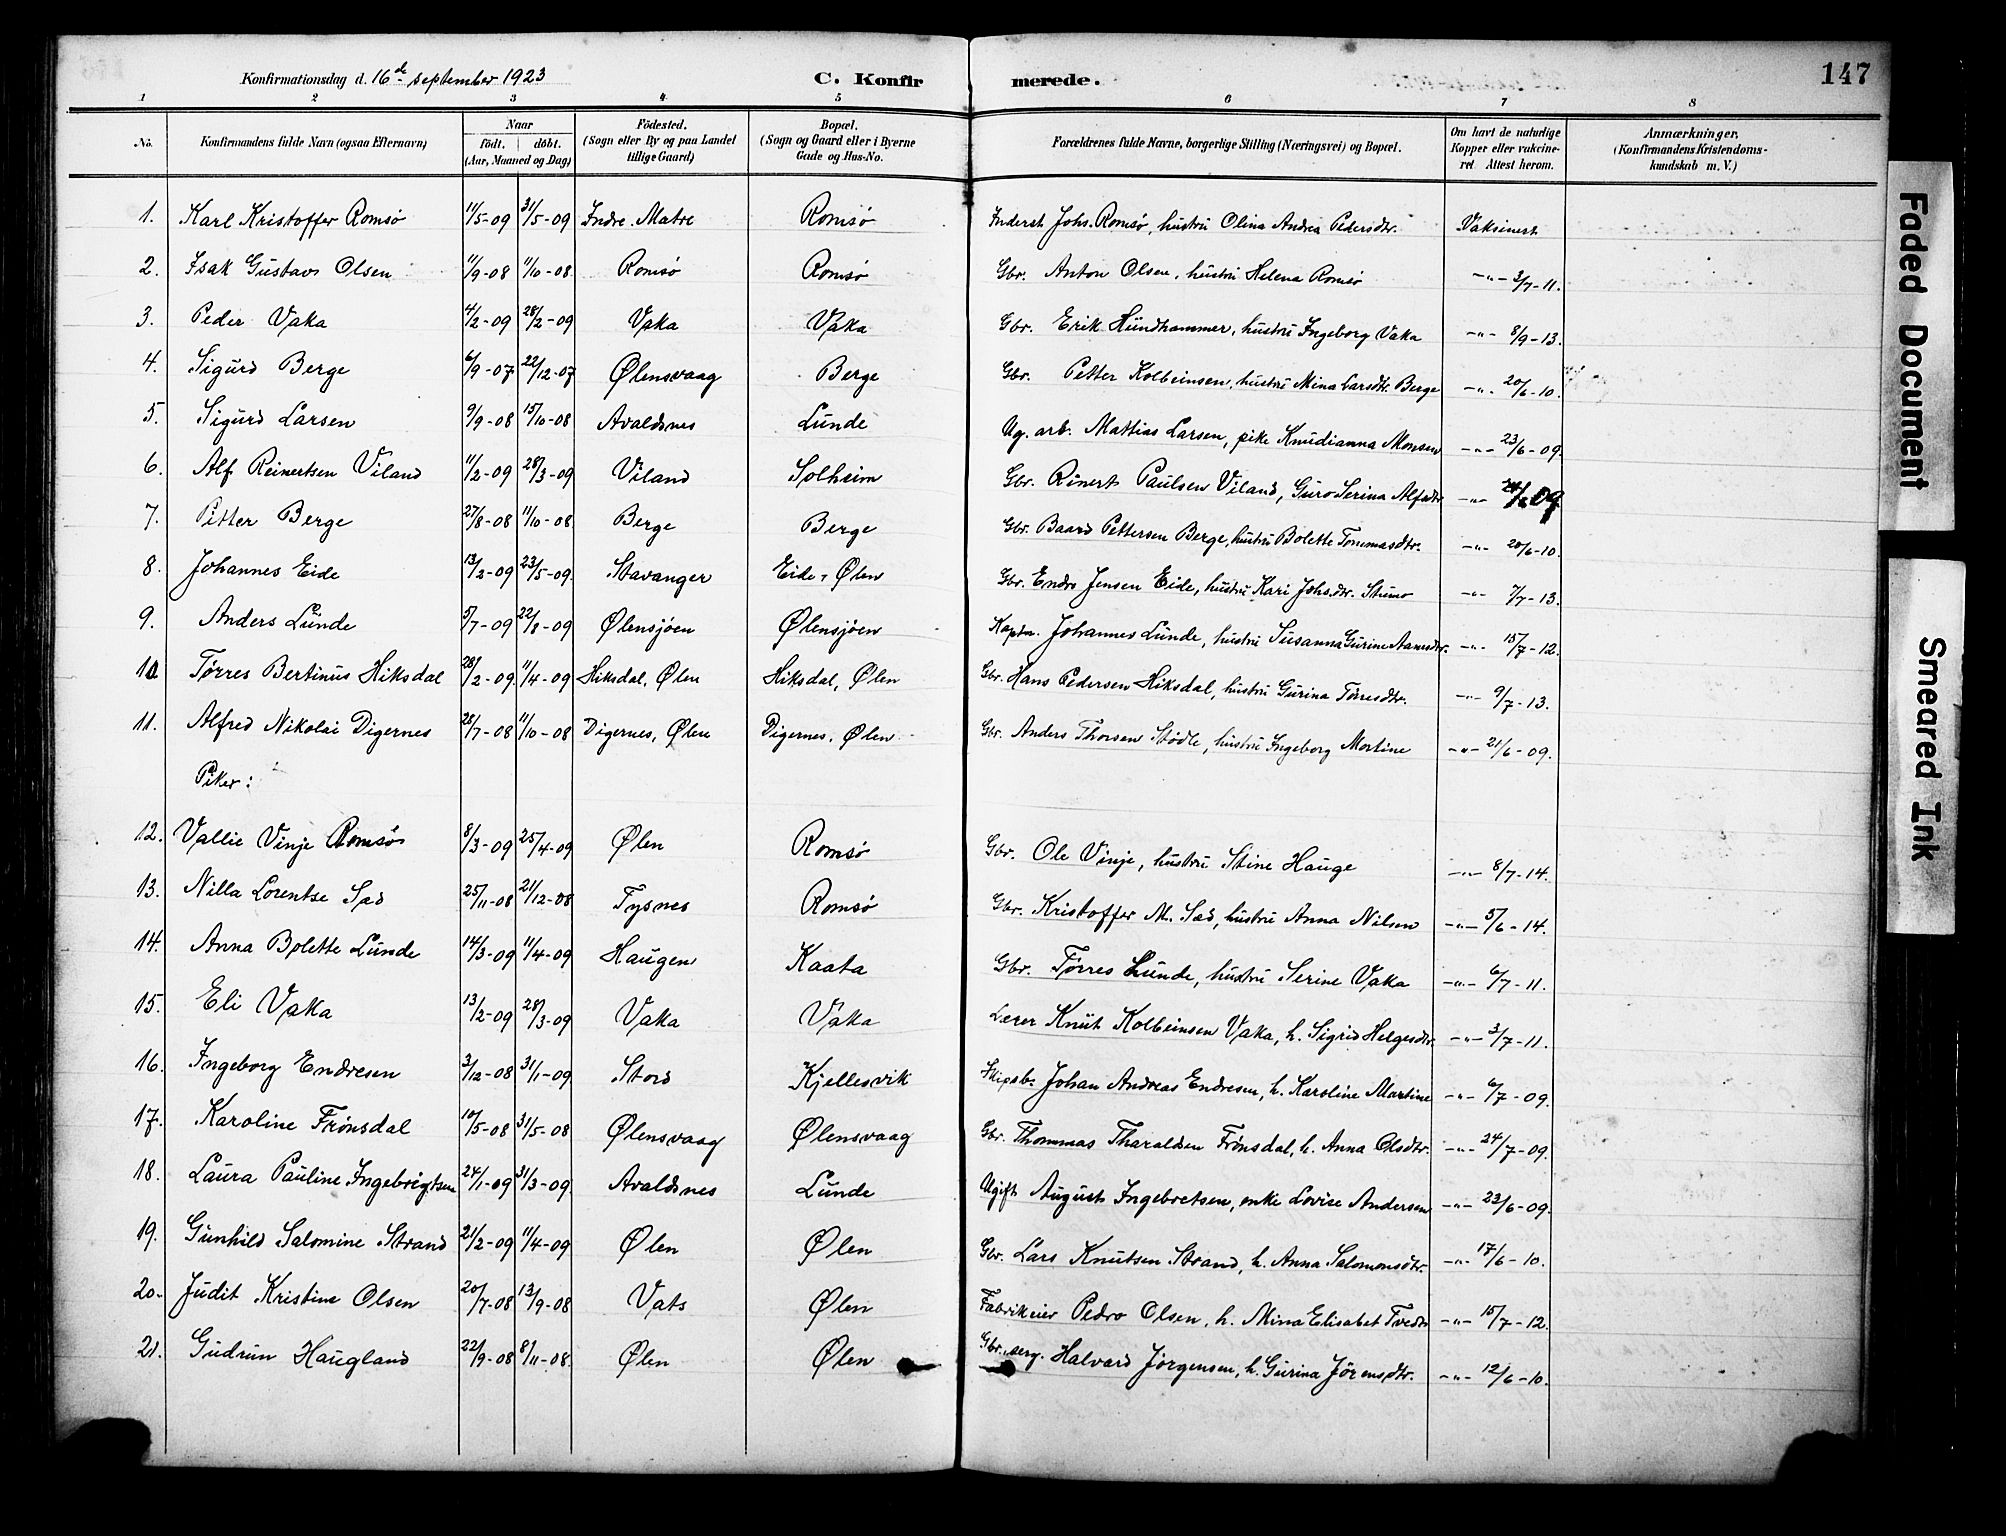 Konfirmationsdag d. 16de september 1923 C. Konfir merede. 147
1 2 3 4 5 6 7 8
No. Konfirmandens fulde Navn (ogsaa Efternavn) Naar født. døbt. (Aar, Maaned og Dag) Fødested. (Sogn eller By og paa Landet tillige Gaard) Bopæl. (Sogn og Gaard eller i Byerne Gade og Hus-No. Forældrenes fulde Navne, borgerlige Stilling (Næringsvei) og Bopæl. Om havt de naturlige Kopper eller vakcineret Attest herom. Anmærkninger. (Konfirmandens Kristendomskundskab m. V.)
1. Karl Kristoffer Romsø 11/5-09 31/5-09 Indre Matre Romsø Inderst Johs. Romsø, hustru Olina Andrea Pedersdtr. Vaksinert
2. Isak Gustavs Olsen 11/9-08 11/10-08 Romsø Romsø Gbr. Anton Olsen, hustru Helena Romsø -"- 3/7-11.
3. Peder Vaka 4/2-09 28/2-09 Vaka Vaka Gbr. Erik Hundhammer, hustru Ingeborg Vaka -"- 8/9-13.
4. Sigurd Berge 6/9-07 22/12-07 Ølensvaag Berge Gbr. Petter Kolbeinsen, hustru Mina Larsdtr. Berge -"- 20/6-10.
5. Sigurd Larsen 9/9-08 15/10-08 Avaldsnes Lunde Ug. arb. Mattias Larsen, pike Knudianna Monsen -"- 23/6-09.
6. Alf Reinertsen Viland 11/2-09 28/3-09 Viland Solheim Gbr. Rinert Paulsen Viland, Guro Serina Alfsdtr -"- 09
7. Petter Berge 27/8-08 11/10-08 Berge Berge Gbr. Baard Pettersen Berge, hustru Bolette Tommasdtr. -"- 20/6-10.
8. Johannes Eide 13/2-09 23/5-09. Stavanger Eide, Ølen Gbr. Endre Jensen Eide, hustru Kari Johs.dtr. Stumo -"- 7/7-13.
9. Anders Lunde 5/7-09 22/8-09 Ølensjøen Ølensjøen Kaptn. Johannes Lunde, hustru Susanna Gurine -"- 15/7-12.
10. Tørres Bertinus Hiksdal 28/2-09. 11/4-09 Hiksdal, Ølen Hiksdal, Ølen Gbr. Hans Pedersen Hiksdal, hustru Gurina Tørresdtr. -"- 9/7-13.
11. Alfred Nikolai Digernes 28/7-08 11/10-08 Digernes, Ølen Digernes, Ølen Gbr. Anders Thorsen Stødle, hustru Ingeborg Martine -"- 21/6-09.
Piker:
12. Vallie Vinje Romsø 8/3-09 25/4-09 Ølen Romsø Gbr. Ole Vinje, hustru Stine Hauge -"- 8/7-14.
13. Nilla Lorentse Sæs 25/11-08 21/12-08 Tysnes Romsø Gbr. Kristoffer M. Sæs, hustru Anna Nilsen -"- 5/6-14.
14. Anna Bolette Lunde 14/3-09 11/4-09 Haugen Kaata Gbr. Tørres Lunde, hustru Serine Vaka -"- 6/7-11.
15. Eli Vaka 13/2-09 28/3-09 Vaka Vaka Lærer Knut Kolbeinsen Vaka, h. Sigrid Helgesdtr. -"- 3/7-11.
16. Ingeborg Endresen 3/12-08 31/1-09 Stord Kjellesvik Skipsb. Johan Andreas Endresen, h. Karoline Martine -"- 6/7-09.
17. Karoline Frønsdal 10/5-08 31/5-08 Ølensvaag Ølensvaag Gbr. Thommas Tharaldsen Frønsdal, h. Anna Olsdtr. -"- 24/7-09.
18. Laura Pauline Ingebrigtsen 24/1-09 31/3-09. Avaldsnes Lunde Ugift August Ingebretsen, enke Lovise Andersen -"- 23/6-09.
19. Gunhild Salomine Strand 21/2-09 11/4-09 Ølen Ølen Gbr. Lars Knutsen Strand, h. Anna Salomonsdtr. -"- 17/6-10.
20. Judit Kristine Olsen 20/7-08 13/9-08 Vats Ølen Fabrikeier Pedro Olsen, h. Mina Elisabet Tvedt -"- 15/7-12.
21. Gudrun Haugland 22/9-08 8/11-08. Ølen Ølen Gbr. serg. Halvard Jørgensen, h. Gurina Jørensdtr. -"- 12/6-10.
Faded Document
Smeared Ink